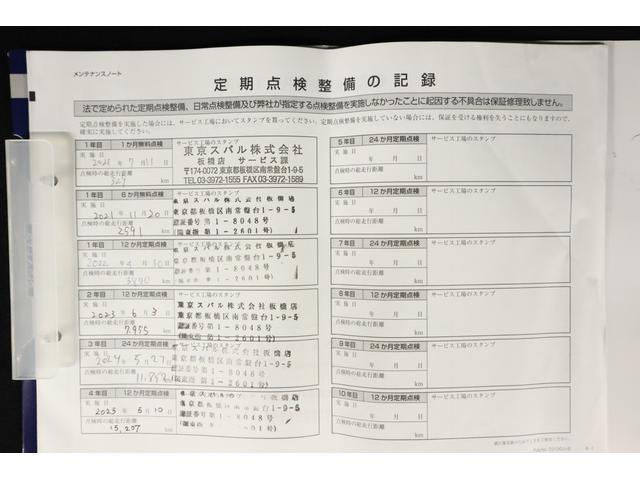 メンテナンスノート
定期点検整備の記録
法で定められた定期点検整備、日常点検整備及び弊社が指定する点検整備を実施しなかったことに起因する不具合は保証修理致しません。
定期点検整備を実施した場合には、サービス工場においてスタンプを貰ってください。定期点検整備を実施していない場合には、保証を受ける権利を失うことにもなりますので、
確実に実施してください。
1年目 1か月無料点検 サービス工場のスタンプ
実施日
2021年7月11日
点検時の総走行距離
327 km
東京スバル株式会社
板橋店 サービス課
〒174-0072 東京都板橋区南常盤台1-9-5
TEL.03-3972-1555 FAX.03-3972-1589
1年目 6か月無料点検 サービス工場のスタンプ
実施日
2021年11月20日
点検時の総走行距離
2591 km
東京スバル株式会社板橋店
東京都板橋区南常盤台1-9-5
認証番号第1-8048号
(関東指第1-2601号)
1年目 12か月定期点検 サービス工場のスタンプ
実施日
2022年4月30日
点検時の総走行距離
km
東京スバル株式会社板橋店
東京都板橋区南常盤台1-9-5
認証番号第1-8048号
2年目 12か月定期点検 サービス工場のスタンプ
実施日
2023年6月3日
点検時の総走行距離
7955 km
東京スバル株式会社板橋店
東京都板橋区南常盤台1-9-5
認証番号第1-8048号
(関東指第1-2601号)
3年目 24か月定期点検 サービス工場のスタンプ
実施日
2024年5月27日
点検時の総走行距離
km
東京スバル株式会社板橋店
東京都板橋区南常盤台1-9-5
認証番号第1-8048号
(関東指第1-2601号)
4年目 12か月定期点検 サービス工場のスタンプ
実施日
2025年5月10日
点検時の総走行距離
15,207 km
認証番号第1-8048号
5年目 24か月定期点検 サービス工場のスタンプ
実施日
年月日
点検時の総走行距離
km
6年目 12か月定期点検 サービス工場のスタンプ
実施日
年月日
点検時の総走行距離
km
7年目 24か月定期点検 サービス工場のスタンプ
実施日
年月日
点検時の総走行距離
km
8年目 12か月定期点検 サービス工場のスタンプ
実施日
年月日
点検時の総走行距離
km
9年目 24か月定期点検 サービス工場のスタンプ
実施日
年月日
点検時の総走行距離
km
10年目 12か月定期点検 サービス工場のスタンプ
実施日
年月日
点検時の総走行距離
km